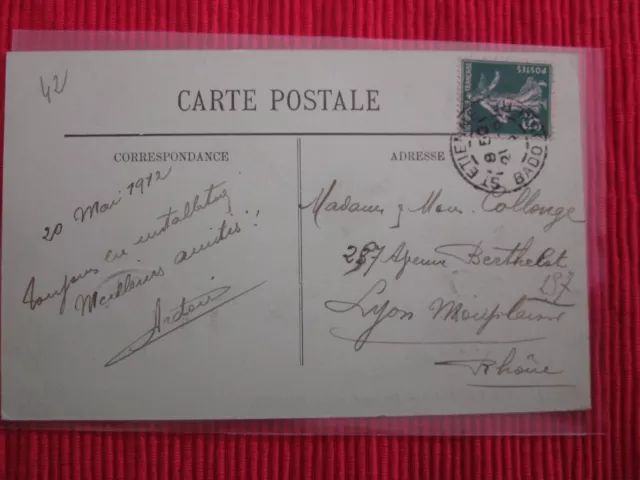 42
CARTE POSTALE
CORRESPONDANCE
ADRESSE
POSTES
ST ETIENNE BADO
20 Mai 1912
Toujours en
Meilleures amitiés!!
Madame & Mons. Collonge
257 Avenue Berthelot
157
Lyon Monplaisir
Rhône